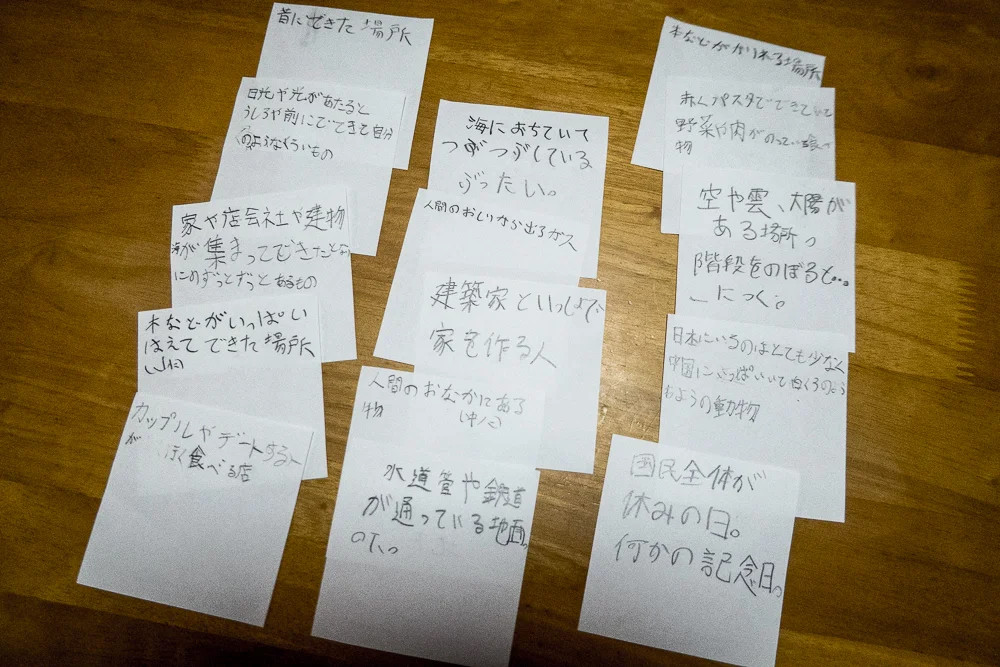 昔にできた場所
日光や光があたると
うしろや前にでてきて自分
のようなくらいもの
家や店会社や建物
が集まってできた
にのずっとずっとあるもの
木などがいっぱい
はえてできた場所
カップルやデートする人
が 行く食べる店
海におちていて
つぶつぶしている
ぶったい。
人間のおしりから出るガス
建築家といっしょで
家を作る人
人間のおなかにある
物
水道管や鉄道
が通っている地面
の下。
木などがかりれる場所
赤くパスタでできていて
野菜や肉がのっている食べ
物
空や雲、太陽が
ある場所。
階段をのぼると…
につく。
日本にいるのはとても少なく
中国にいっぱいいて白くろの
もようの動物
国民全体が
休みの日。
何かの記念日。